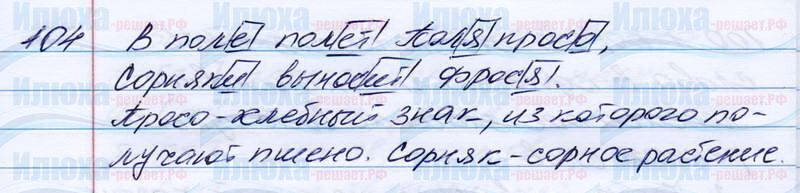 104 В поле полет Поля просо,
Сорняки выносит Фрося.
Просо - хлебный знак, из которого по-
лучают пшено. Сорняк - сорное растение.